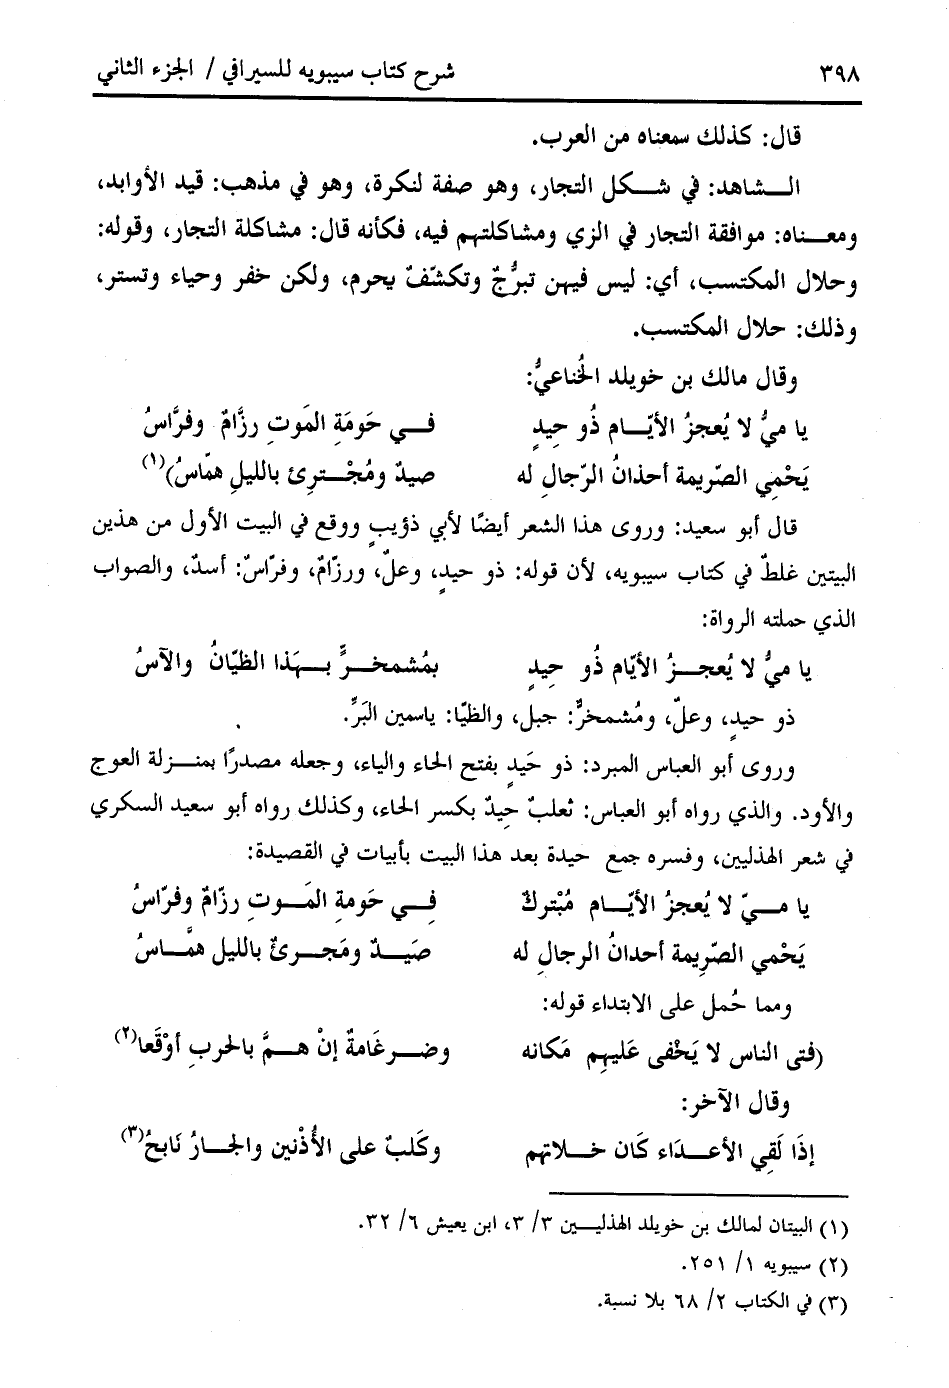 ٣٩٨ شرح كتاب سيبويه للسيرافي / الجزء الثاني
قال: كذلك سمعناه من العرب.
الـشاهد: في شـكل التجار، وهو صفة لنكرة، وهو في مذهب: قيد الأوابد،
ومعـناه: موافقة التجار في الزي ومشاكلتهم فيه، فكأنه قال: مشاكلة التجار، وقوله:
وحلال المكتسب، أي: ليس فيهن تبرُّجٌ وتكشّفٌ يحرم، ولكن خفر وحياء وتستر،
وذلك: حلال المكتسب.
وقال مالك بن خويلد الخُناعيُّ:
يا ميُّ لا يُعجزُ الأيّـام ذُو حيدٍ فـي حَومَةِ المَوتِ رزَّامٌ وفرَّاسُ
يَحْمِي الصّريمة أحذانُ الرّجالِ له صيدٌ ومُجْـترِئ بالليلِ همّاسُ)(١)
قال أبو سعيد: وروى هذا الشعر أيضًا لأبي ذؤيبٍ ووقع في البيت الأول من هذين
البيتين غلطٌ في كتاب سيبويه، لأن قوله: ذو حيدٍ، وعلٌ، ورزّامٌ، وفرّاسٌ: أسدٌ، والصواب
الذي حملته الرواة:
يا ميُّ لا يُعجـزُ الأيّام ذُو حِيدٍ بمُشمخـرٍّ بـهَذا الظيّانُ والآسُ
ذو حيدٍ، وعلٌ، ومُشمخرٌّ: جبل، والظيّا: ياسمين البَرِّ.
وروى أبو العباس المبرد: ذو حَيدٍ بفتح الحاء والياء، وجعله مصدرًا بمنـزلة العوج
والأود. والذي رواه أبو العباس: ثعلبٌ حِيدٌ بكسر الحاء، وكذلك رواه أبو سعيد السكري
في شعر الهذليين، وفسره جمع حيدة بعد هذا البيت بأبيات في القصيدة:
يا مـيّ لا يُعجزُ الأيّـام مُبْتركٌ فـي حَومةِ المَـوتِ رزّامٌ وفرّاسُ
يَحْمِي الصّرِيمة أحدانُ الرجالِ له صَيَـدٌ ومَجـرئٌ بالليل همَّـاسُ
ومما حُمل على الابتداء قوله:
(فتى الناس لا يَخْفى عَليهِم مَكانه وضـرغَامةٌ إنْ هـمَّ بالحربِ أوْقَعا(٢)
وقال الآخر:
إذَا لَقِي الأعـدَاء كَان خـلاتهم وكَلبٌ على الأُذْنين والجـارُ نَابحُ(٣)
(١) البيتان لمالك بن خويلد الهذليـين ٣/ ٣، ابن يعيش ٦/ ٣٢.
(٢) سيبويه ١/ ٢٥١.
(٣) في الكتاب ٢/ ٦٨ بلا نسبة.